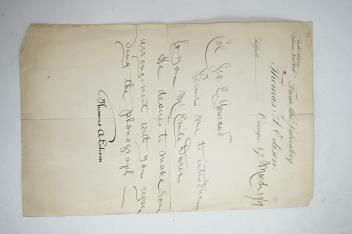 From the Laboratory
of
Thomas A. Edison,
Orange, N.J. March 1
Col Geo E Gouraud
Permit me to introduce
to you Mr Emile
He desires to make some
arrangement with you regar
ding the phonograph —
Thomas A Edison